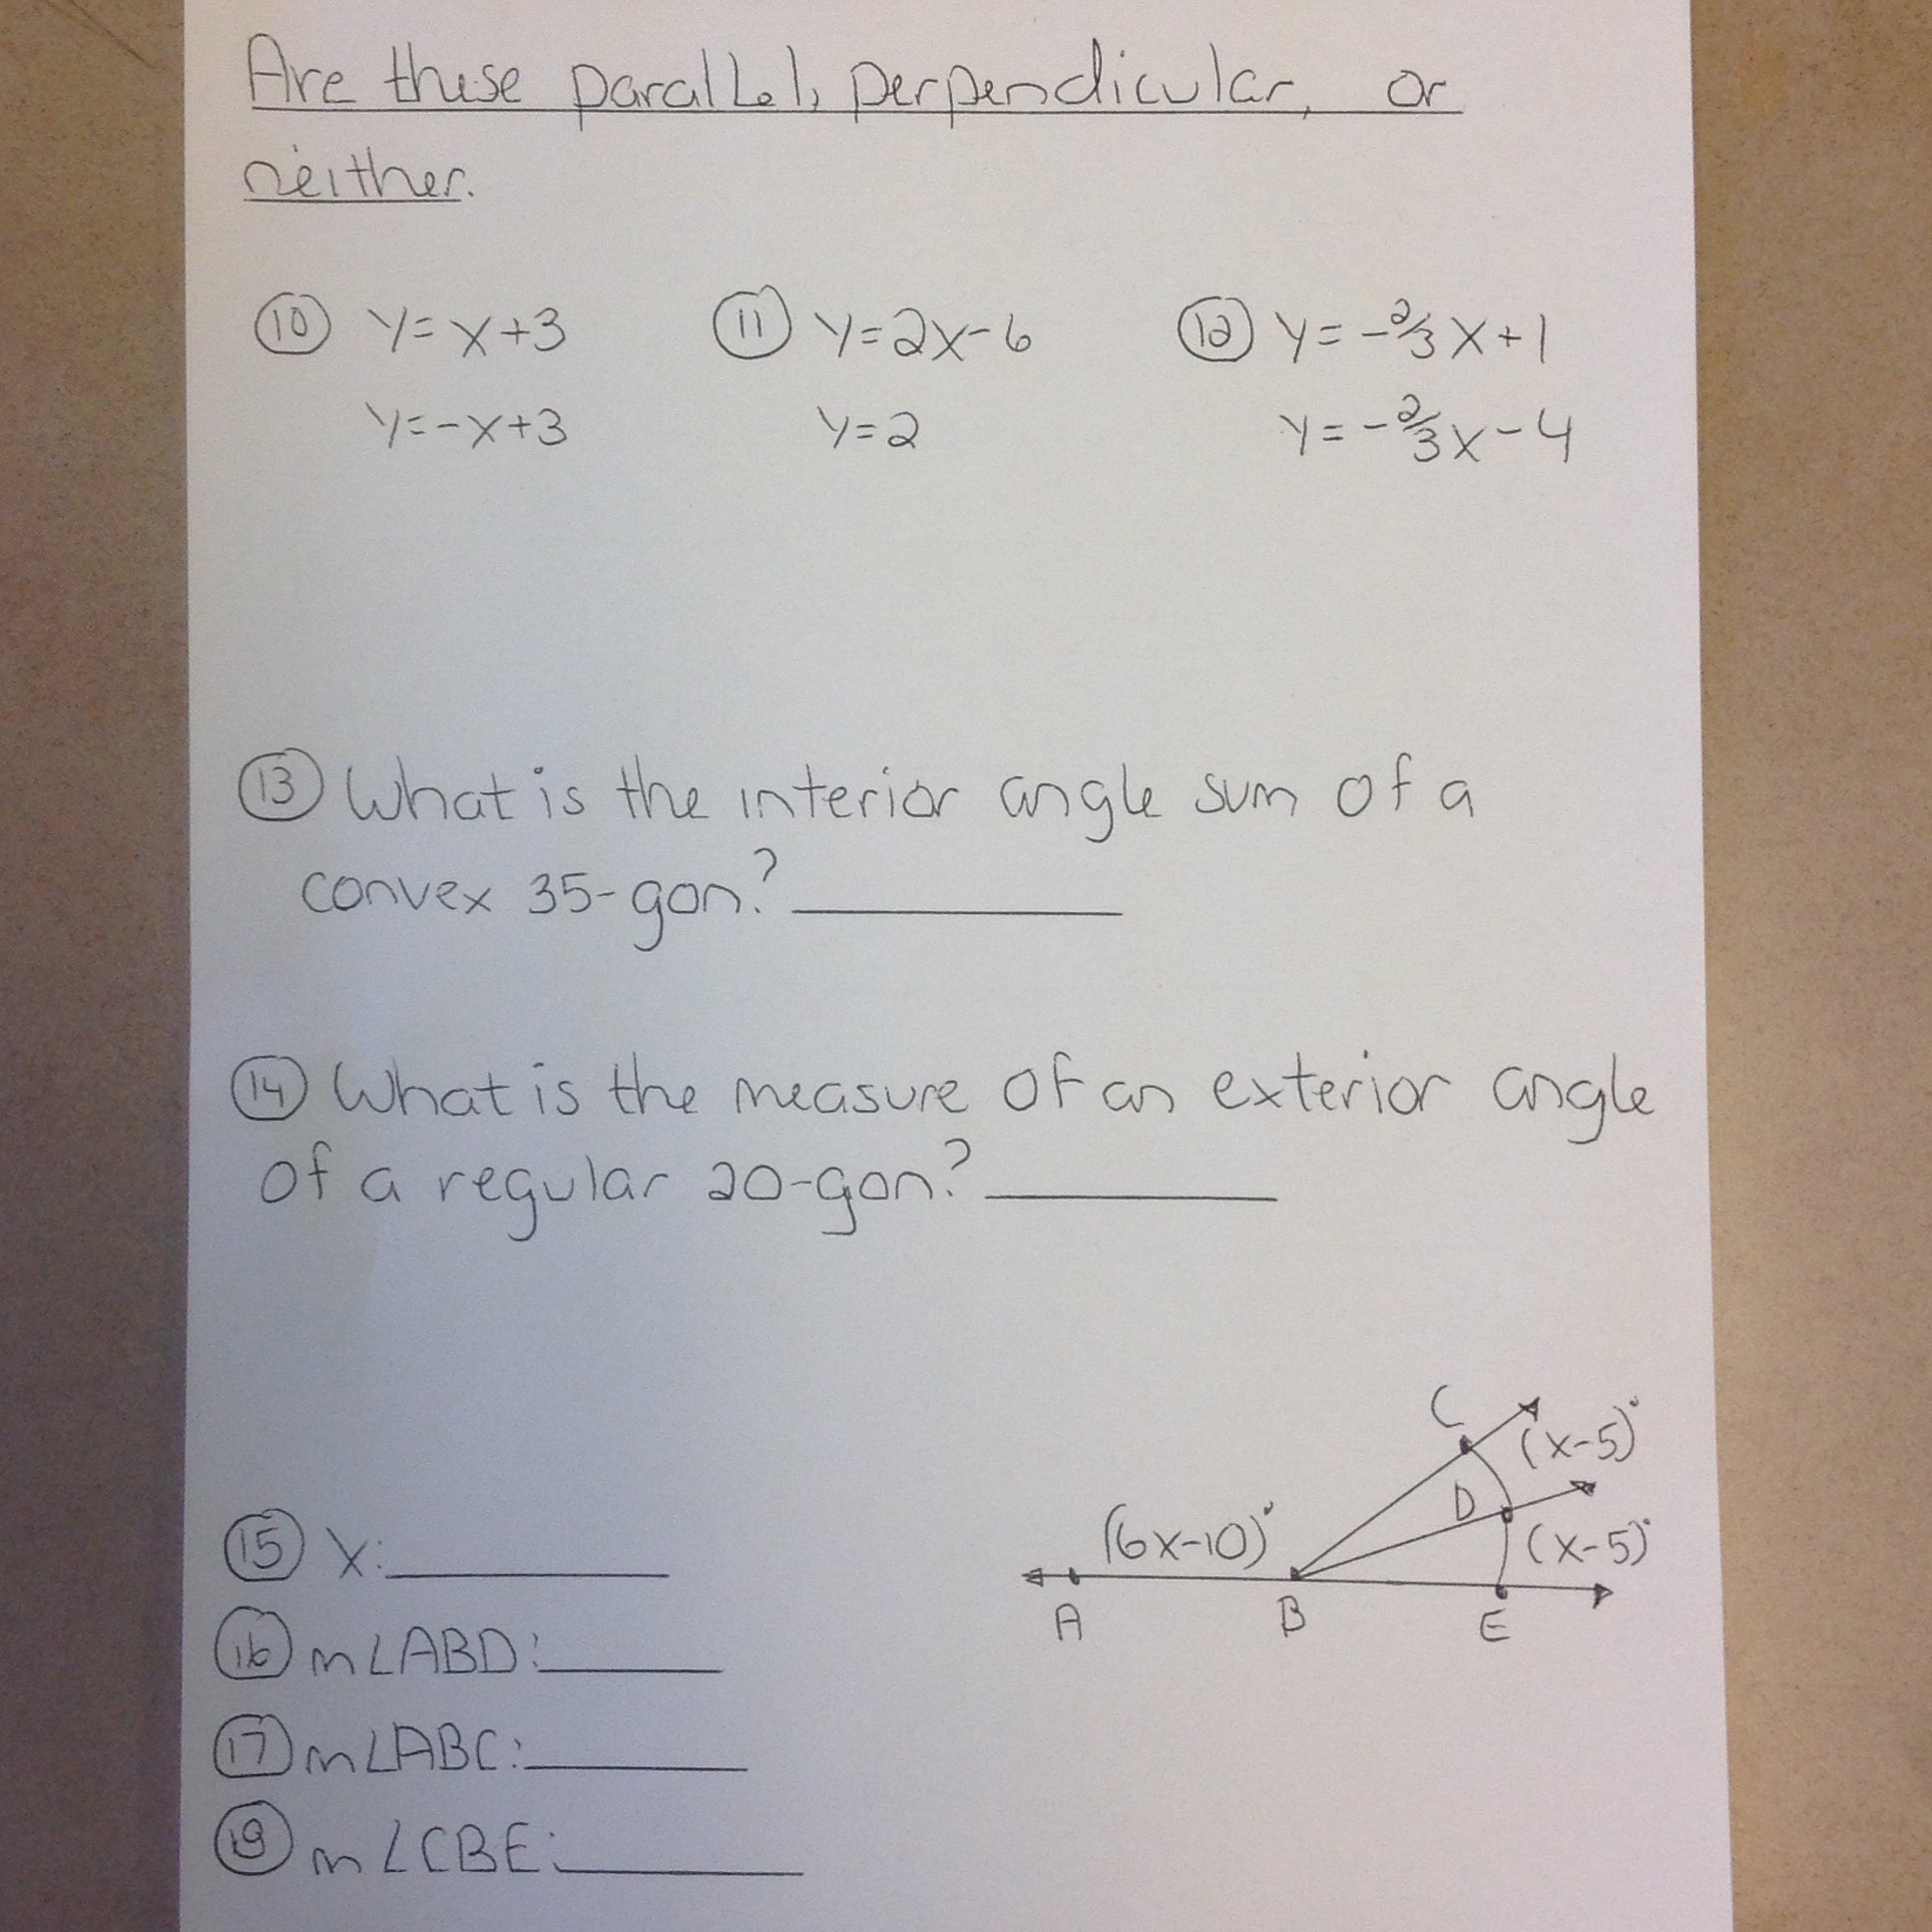 Are these parallel, perpendicular, or
neither.
⑩ y=x+3 ⑪ y=2x-6 ⑫ y=-2/3x+1
y=-x+3 y=2 y=-2/3x-4
⑬ What is the interior angle sum of a
convex 35-gon? __________
⑭ What is the measure of an exterior angle
of a regular 20-gon? __________
C
(x-5)°
D
(6x-10)°
(x-5)°
A B E
⑮ x: __________
⑯ m∠ABD: __________
⑰ m∠ABC: __________
⑱ m∠CBE: __________